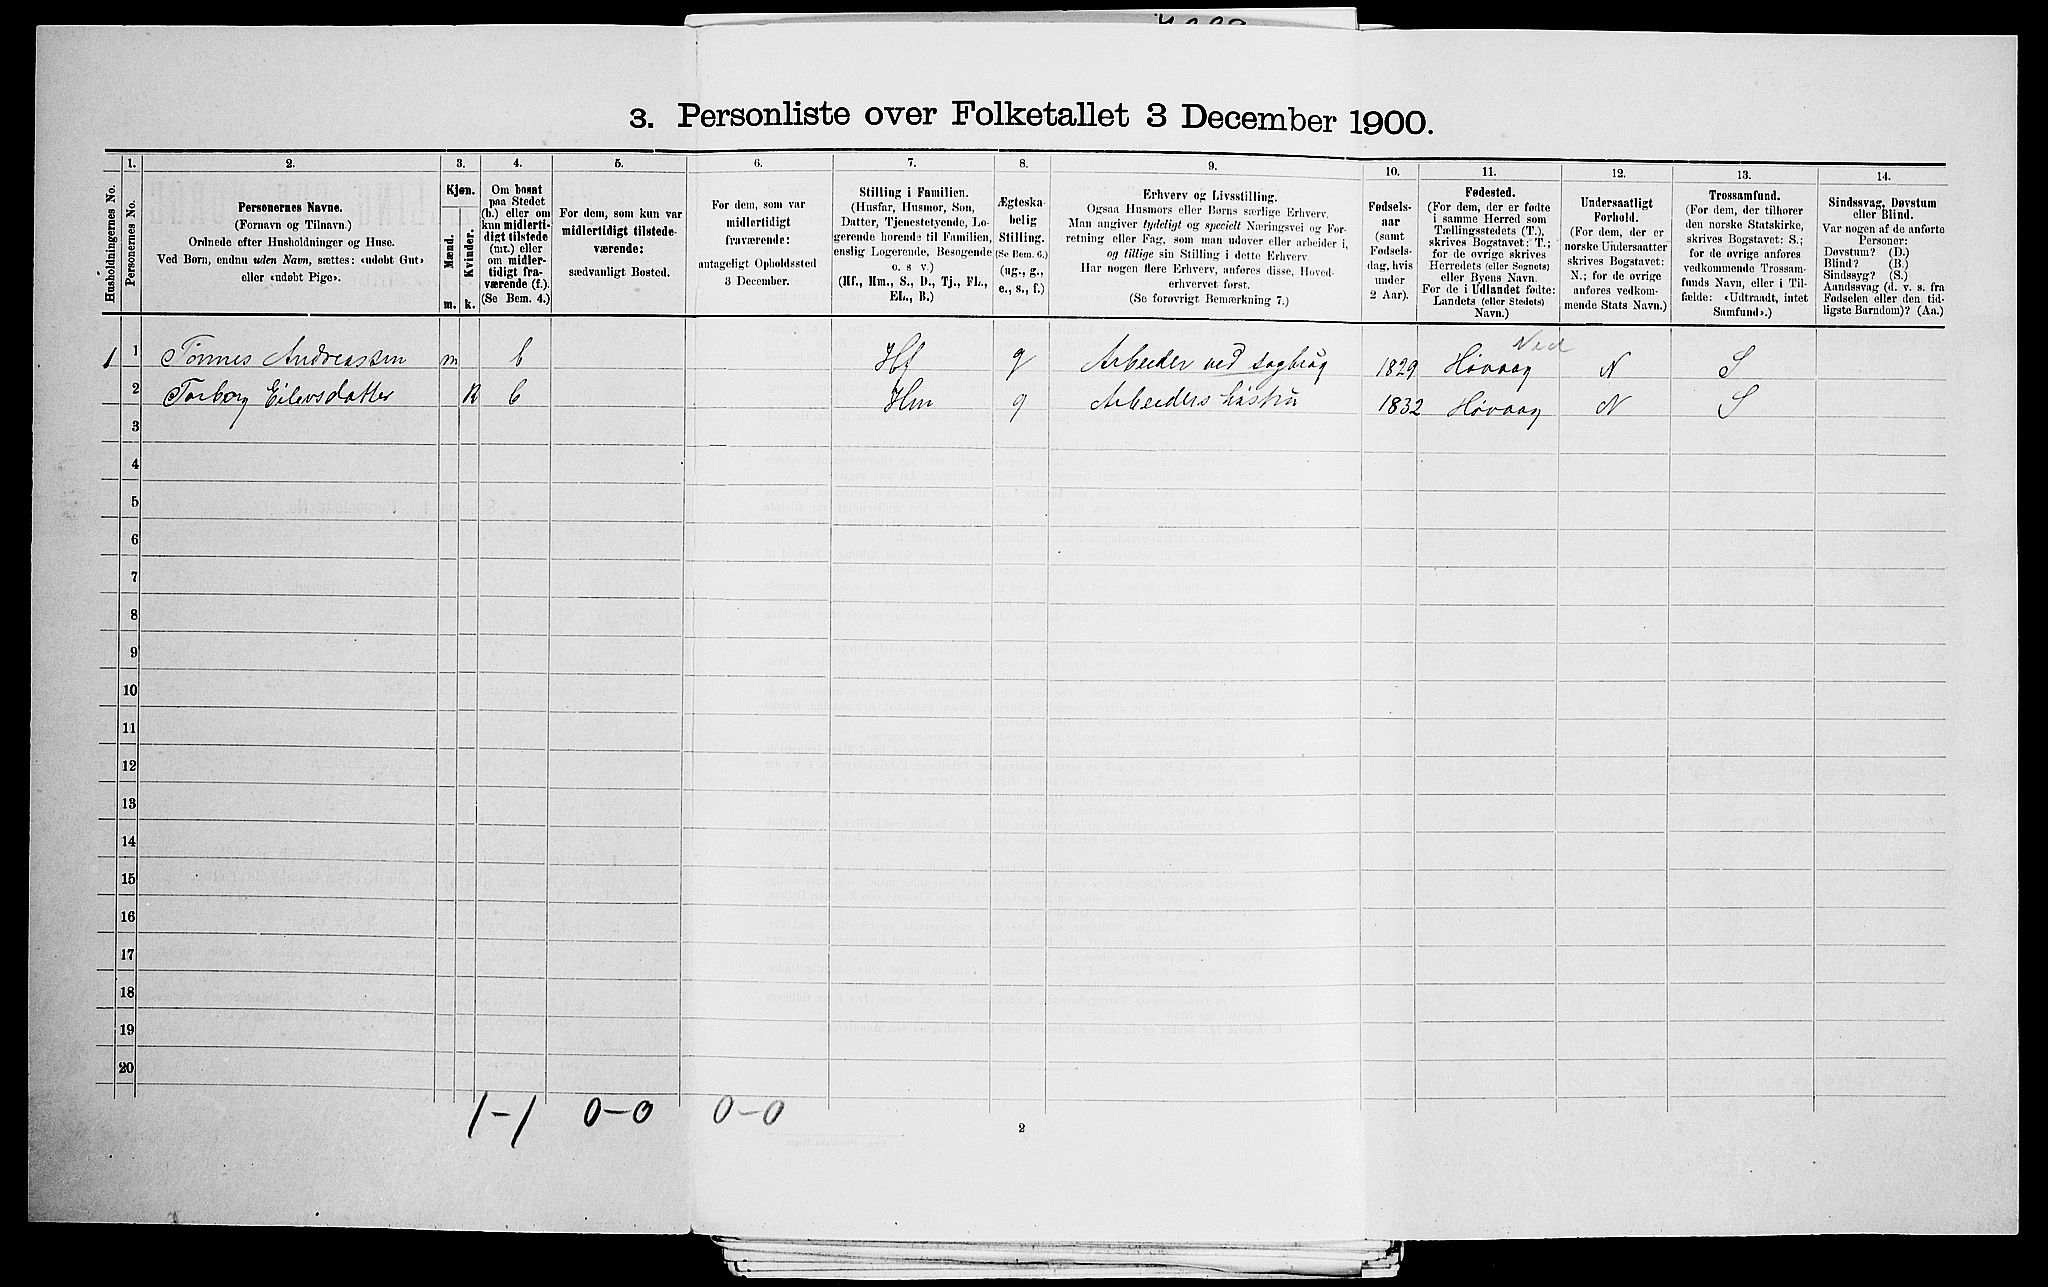 3. Personliste over Folketallet 3 December 1900.
Husholdningernes No.
1.
Personernes No.
2.
Personernes Navne.
(Fornavn og Tilnavn.)
Ordnede efter Husholdninger og Huse.
Ved Børn, endnu uden Navn, sættes: «udøbt Gut»
eller «udøbt Pige».
3.
Kjøn.
Mænd.
Kvinder.
m.
k.
4.
Om bosat
paa Stedet
(b.) eller om
kun midlerti-
digt tilstede
(mt.) eller
om midler-
tidigt fra-
værende (f.).
(Se Bem. 4.)
5.
For dem, som kun var
midlertidigt tilstede-
værende:
sædvanligt Bosted.
6.
For dem, som var
midlertidigt
fraværende:
antageligt Opholdssted
3 December.
7.
Stilling i Familien.
(Husfar, Husmor, Søn,
Datter, Tjenestetyende, Lo-
gerende hørende til Familien,
enslig Logerende, Besøgende
o. s v.)
(Hf., Hm., S., D., Tj., FL.,
EL., B.)
8.
Ægteska-
belig
Stilling.
(Se Bem. 6.)
(ug., g.,
e., s., f.)
9.
Erhverv og Livsstilling.
Ogsaa Husmors eller Børns særlige Erhverv.
Man angiver tydeligt og specielt Næringsvei og For-
retning eller Fag, som man udøver eller arbeider i,
og tillige sin Stilling i dette Erhverv.
Har nogen flere Erhverv, anføres disse, Hoved-
erhvervet først.
(Se forøvrigt Bemærkning 7.)
10.
Fødsels-
aar
(samt
Fødsels-
dag, hvis
under
2 Aar).
11.
Fødested.
(For dem, der er fødte
i samme Herred som
Tællingsstedets (T.),
skrives Bogstavet: T.;
for de øvrige skrives
Herredets (eller Sognets)
eller Byens Navn.
For de i Udlandet fødte:
Landets (eller Stedets)
Navn.)
12.
Undersaatligt
Forhold.
(For dem, der er
norske Undersaatter
skrives Bogstavet:
N.; for de øvrige
anføres vedkom-
mende Stats Navn.)
13.
Trossamfund.
(For dem, der tilhører
den norske Statskirke,
skrives Bogstavet: S.;
for de øvrige anføres
vedkommende Trossam-
funds Navn, eller i Til-
fælde: «Udtraadt, intet
Samfund».)
14.
Sindssvag, Døvstum
eller Blind.
Var nogen af de anførte
Personer:
Døvstum? (D.)
Blind? (B.)
Sindssyg? (S.)
Aandssvag (d. v. s. fra
Fødselen eller den tid-
ligste Barndom)? (Aa.)
Ved
1 1 Tønnes Andreassen m b Hf g Arbeider ved sagbrug 1829 Høvaag N S
2 Torborg Eilevsdatter k b Hm g Arbeiders hustru 1832 Høvaag N S
3
4
5
6
7
8
9
10
11
12
13
14
15
16
17
18
19
20
1–1 0–0 0–0
2